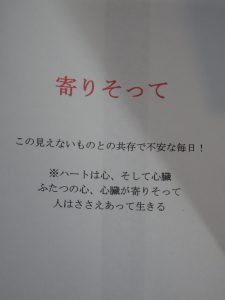 寄りそって
この見えないものとの共存で不安な毎日！
※ハートは心、そして心臓
ふたつの心、心臓が寄りそって
人はささえあって生きる